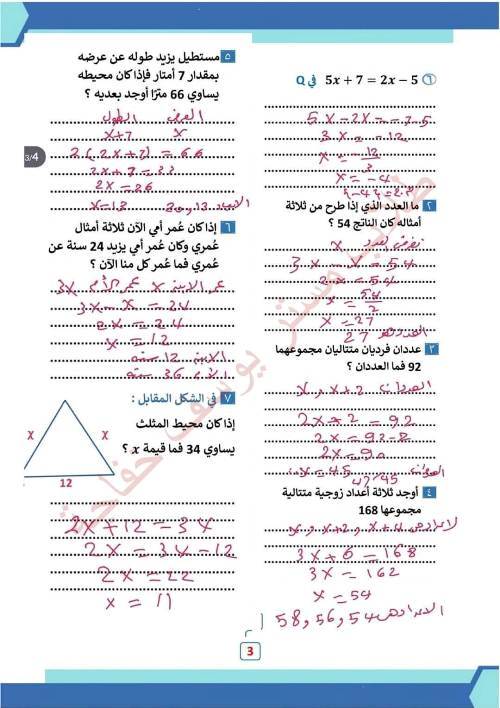 ٦ 5x + 7 = 2x − 5 في Q
5x − 2x = −7−5
3x = −12
x = −12/3
x = −4
٢ ما العدد الذي إذا طرح من ثلاثة
أمثاله كان الناتج 54 ؟
نفرض العدد x
3x − x = 54
2x = 54
x = 54/2
x = 27
العدد هو 27
٣ عددان فرديان متتاليان مجموعهما
92 فما العددان ؟
العددان x , x+2
2x+2 = 92
2x = 92−2
2x = 90
x = 45
العددان 45 , 47
٤ أوجد ثلاثة أعداد زوجية متتالية
مجموعها 168
الاعداد هى x, x+2, x+4
3x+6 = 168
3x = 162
x = 54
الاعداد هى 54, 56, 58
٥ مستطيل يزيد طوله عن عرضه
بمقدار 7 أمتار فإذا كان محيطه
يساوي 66 مترًا أوجد بعديه ؟
العرض الطول
x x+7
2(2x+7) = 66
2x+7 = 33
2x = 26
x = 13
3/4
٦ إذا كان عُمر أمي الآن ثلاثة أمثال
عُمري وكان عُمر أمي يزيد 24 سنة عن
عُمري فما عُمر كل منا الآن ؟
عمر الابنة x عمر الأم 3x
3x − x = 24
2x = 24
x = 12
الابنة 12 سنة
الام 36 سنة
٧ في الشكل المقابل :
إذا كان محيط المثلث
يساوي 34 فما قيمة x ؟
x x
12
2x + 12 = 34
2x = 34 − 12
2x = 22
x = 11
3